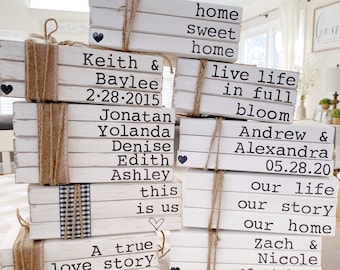 home
sweet
home
Keith &
Baylee
2·28·2015
live life
in full
bloom
Jonatan
Yolanda
Denise
Edith
Ashley
Andrew &
Alexandra
05.28.20
this
is us
our life
our story
our home
A true
love story
Zach &
Nicole